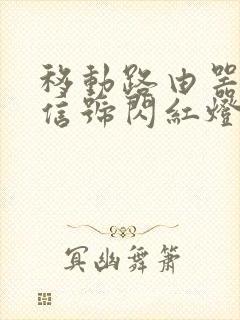 移動路由器
信號閃紅燈
冥幽舞簫